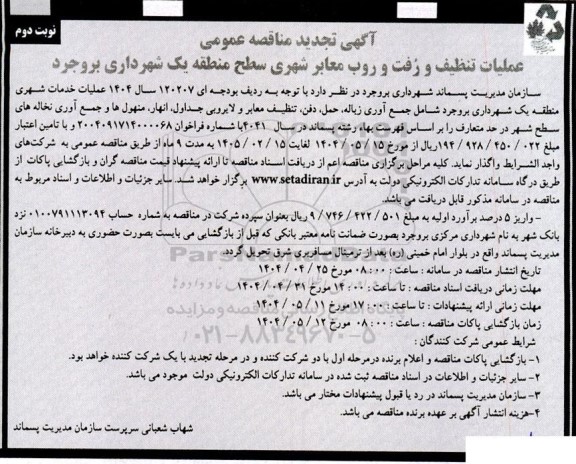 نوبت دوم
آگهی تجدید مناقصه عمومی
عملیات تنظیف و رُفت و روب معابر شهری سطح منطقه یک شهرداری بروجرد
سازمان مدیریت پسماند شهرداری بروجرد در نظر دارد با توجه به ردیف بودجه ای ۱۲۰۲۰۷ سال ۱۴۰۴ عملیات خدمات شهری
منطقه یک شهرداری بروجرد شامل جمع آوری زباله، حمل، دفن، تنظیف معابر و لایروبی جداول، انهار، منهول ها و جمع آوری نخاله های
سطح شهر در حد متعارف را بر اساس فهرست بهاء رشته پسماند در سال ۴۰۴۱ با شماره فراخوان ۲۰۰۴۰۹۱۷۱۴۰۰۰۰۶۸ و با تامین اعتبار
مبلغ ۰۲۲ / ۴۵۰ / ۹۲۸ / ۱۹۴ ریال از مورخ ۱۵ / ۰۵ / ۱۴۰۴ لغایت ۱۵ / ۰۲ / ۱۴۰۵ به مدت ۹ ماه از طریق مناقصه عمومی به شرکت‌های
واجد الشرایط واگذار نماید. کلیه مراحل برگزاری مناقصه اعم از دریافت اسناد مناقصه تا ارائه پیشنهاد قیمت مناقصه گران و بازگشایی پاکات از
طریق درگاه سامانه تدارکات الکترونیکی دولت به آدرس www.setadiran.ir برگزار خواهد شد. سایر جزئیات و اطلاعات و اسناد مربوط به
مناقصه در سامانه مذکور قابل دریافت می باشد.
- واریز ۵ درصد برآورد اولیه به مبلغ ۵۰۱ / ۴۲۲ / ۷۴۶ / ۹ ریال بعنوان سپرده شرکت در مناقصه به شماره حساب ۰۱۰۰۷۹۱۱۱۳۰۹۴ نزد
بانک شهر به نام شهرداری مرکزی بروجرد بصورت ضمانت نامه معتبر بانکی که قبل از بازگشایی می بایست بصورت حضوری به دبیرخانه سازمان
مدیریت پسماند واقع در بلوار امام خمینی (ره) بعد از ترمینال مسافربری شرق تحویل گردد.
تاریخ انتشار مناقصه در سامانه : ساعت : ۰۸:۰۰ مورخ ۲۵ / ۰۴ / ۱۴۰۴
مهلت زمانی دریافت اسناد مناقصه : تا ساعت : ۱۴:۰۰ مورخ ۳۱ / ۰۴ / ۱۴۰۴
مهلت زمانی ارائه پیشنهادات : تا ساعت : ۱۷:۰۰ مورخ ۱۱ / ۰۵ / ۱۴۰۴
زمان بازگشایی پاکات مناقصه : ساعت : ۰۸:۰۰ مورخ ۱۲ / ۰۵ / ۱۴۰۴
۰۲۱-۸۸۳۴۹۶۷۰-۵
شرایط عمومی شرکت کنندگان :
۱- بازگشایی پاکات مناقصه و اعلام برنده درمرحله اول با دو شرکت کننده و در مرحله تجدید با یک شرکت کننده خواهد بود.
۲- سایر جزئیات و اطلاعات در اسناد مناقصه ثبت شده در سامانه تدارکات الکترونیکی دولت موجود می باشد.
۳- سازمان مدیریت پسماند در رد یا قبول پیشنهادات مختار می باشد.
۴- هزینه انتشار آگهی بر عهده برنده مناقصه می باشد.
شهاب شعبانی سرپرست سازمان مدیریت پسماند